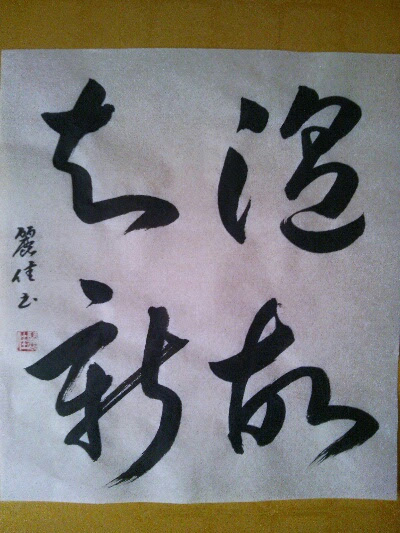 温故
知新
麗佳書